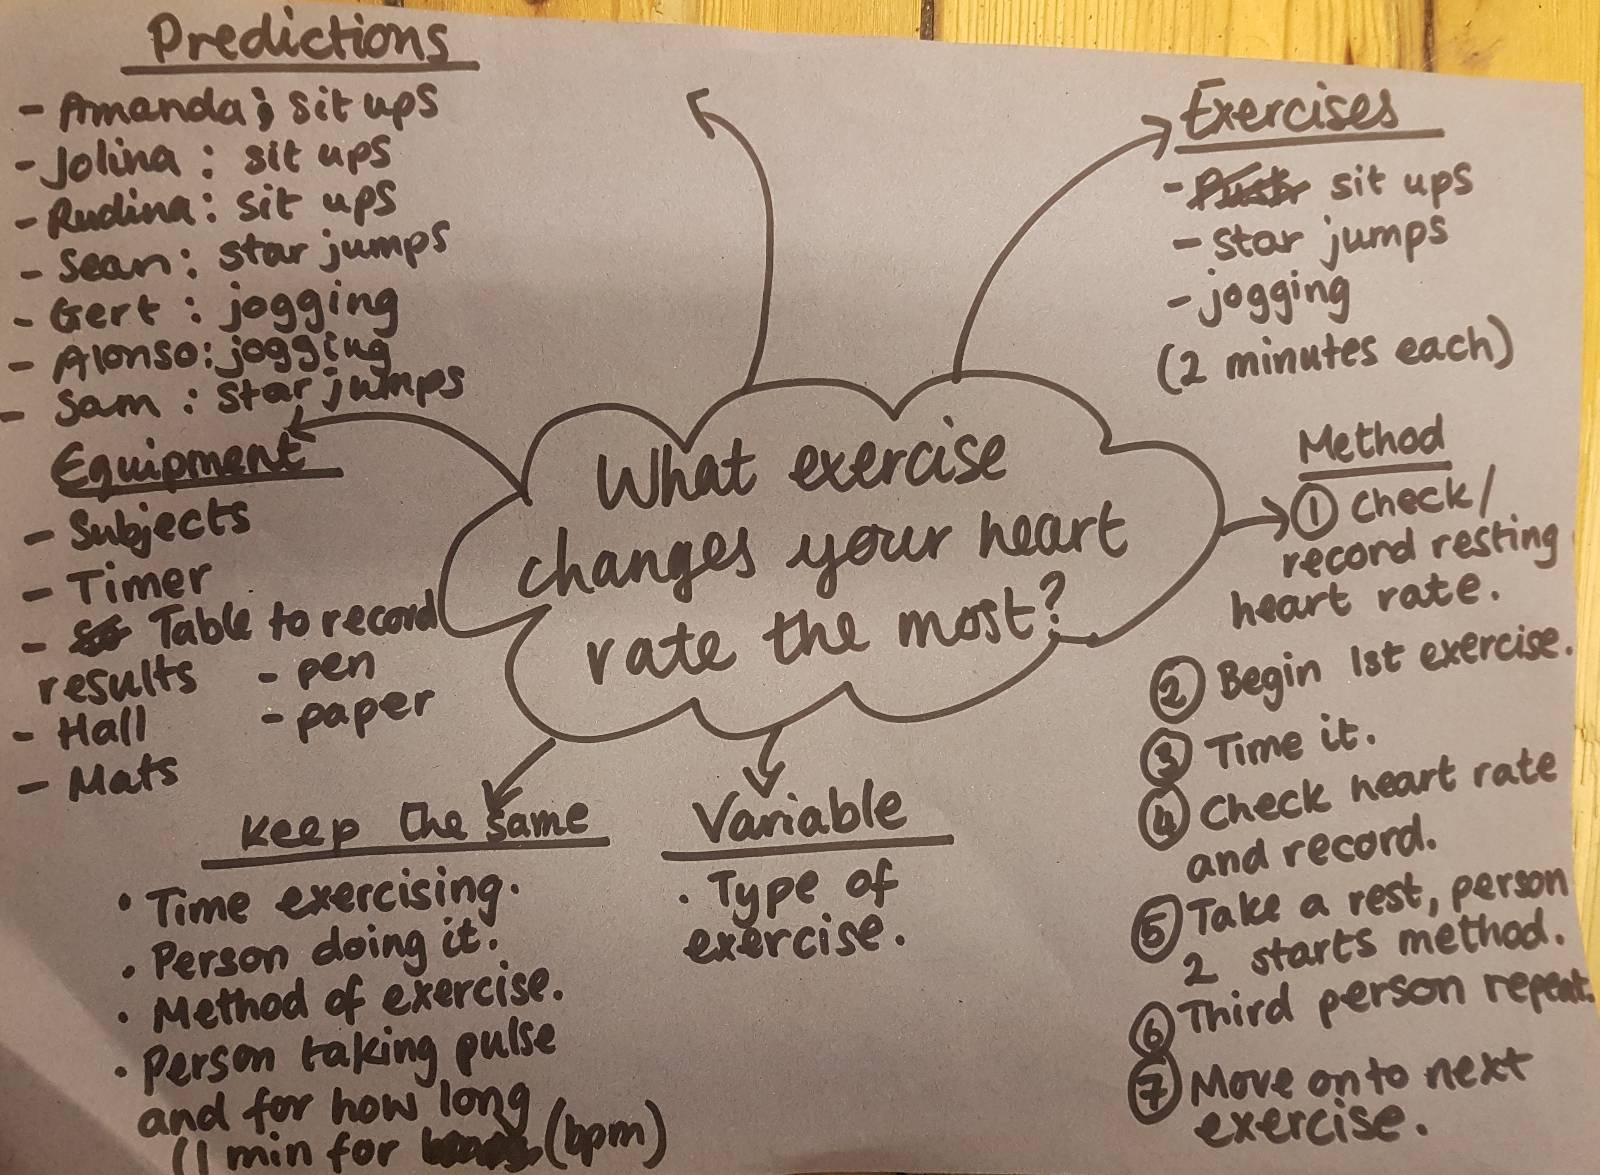 Predictions
- Amanda: sit ups
- Jolina: sit ups
- Rudina: sit ups
- Sean: star jumps
- Gert: jogging
- Alonso: jogging
- Sam: star jumps
Equipment
- Subjects
- Timer
- Table to record
results
- Hall
- Mats
- pen
- paper
What exercise
changes your heart
rate the most?
Exercises
- sit ups
- star jumps
- jogging
(2 minutes each)
Method
① Check/
record resting
heart rate.
② Begin 1st exercise.
③ Time it.
④ Check heart rate
and record.
⑤ Take a rest, person
2 starts method.
⑥ Third person repeat.
⑦ Move onto next
exercise.
Keep the same
• Time exercising.
• Person doing it.
• Method of exercise.
• Person taking pulse
and for how long
(1 min for (bpm)
Variable
• Type of
exercise.